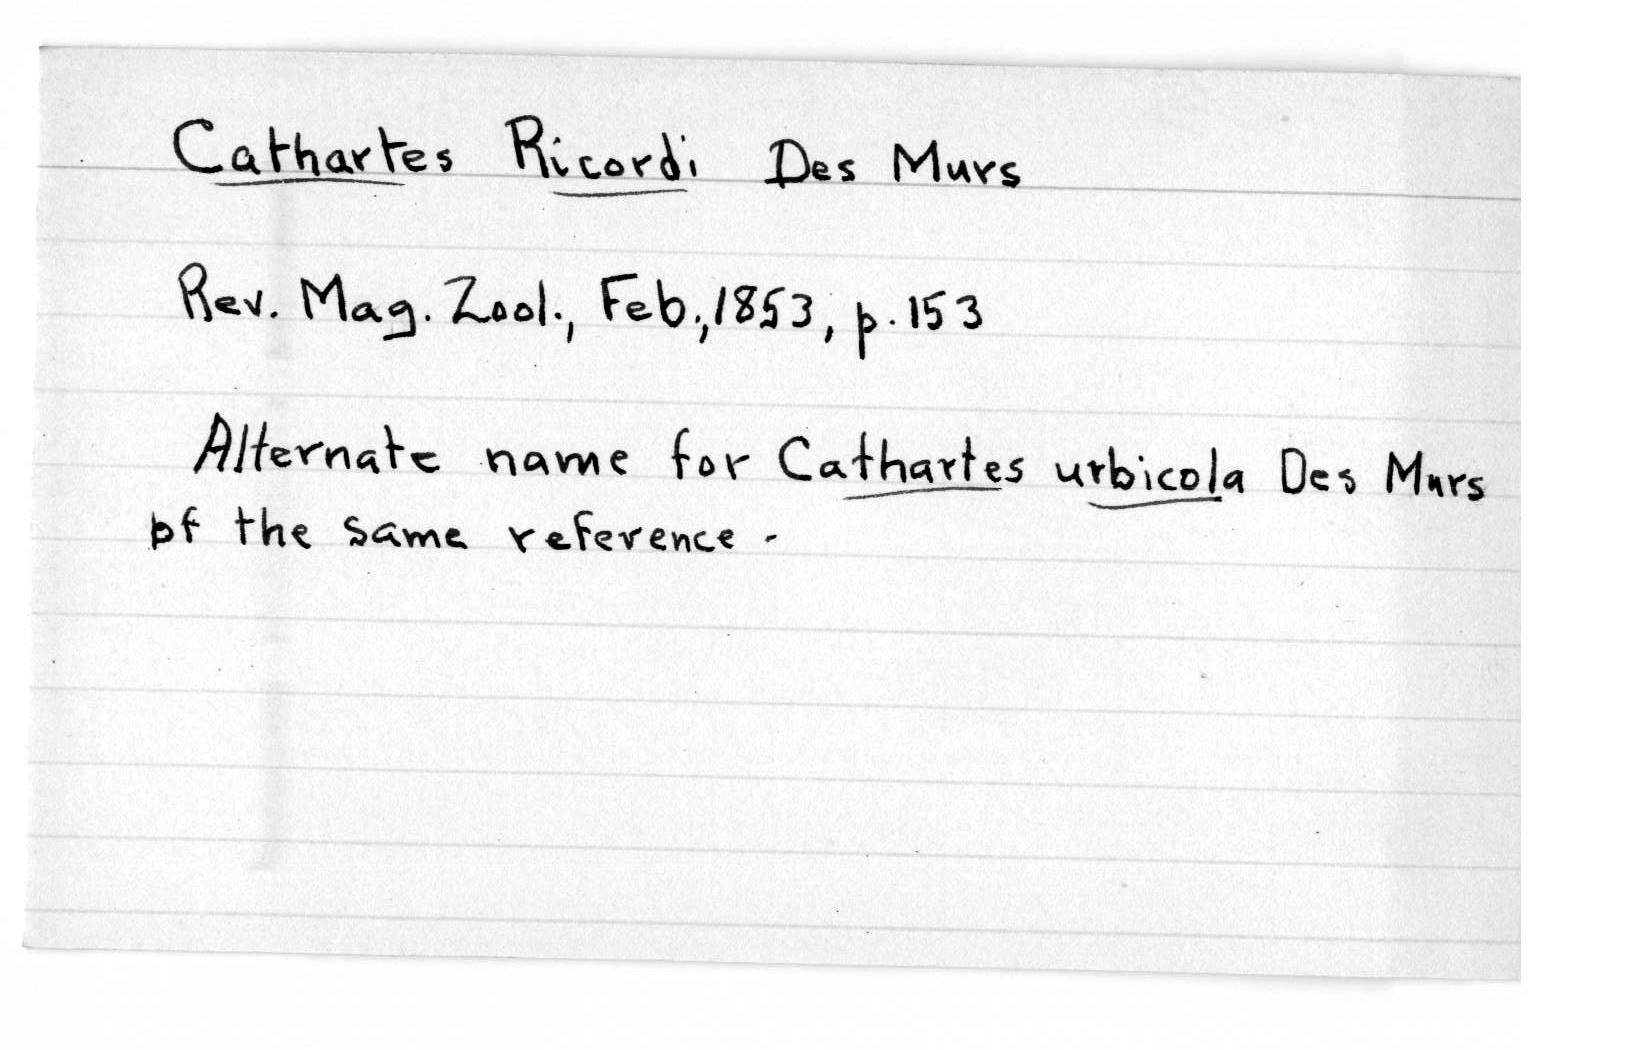 Cathartes Ricordi Des Murs
Rev. Mag. Zool., Feb., 1853, p. 153
Alternate name for Cathartes urbicola Des Murs
of the same reference.